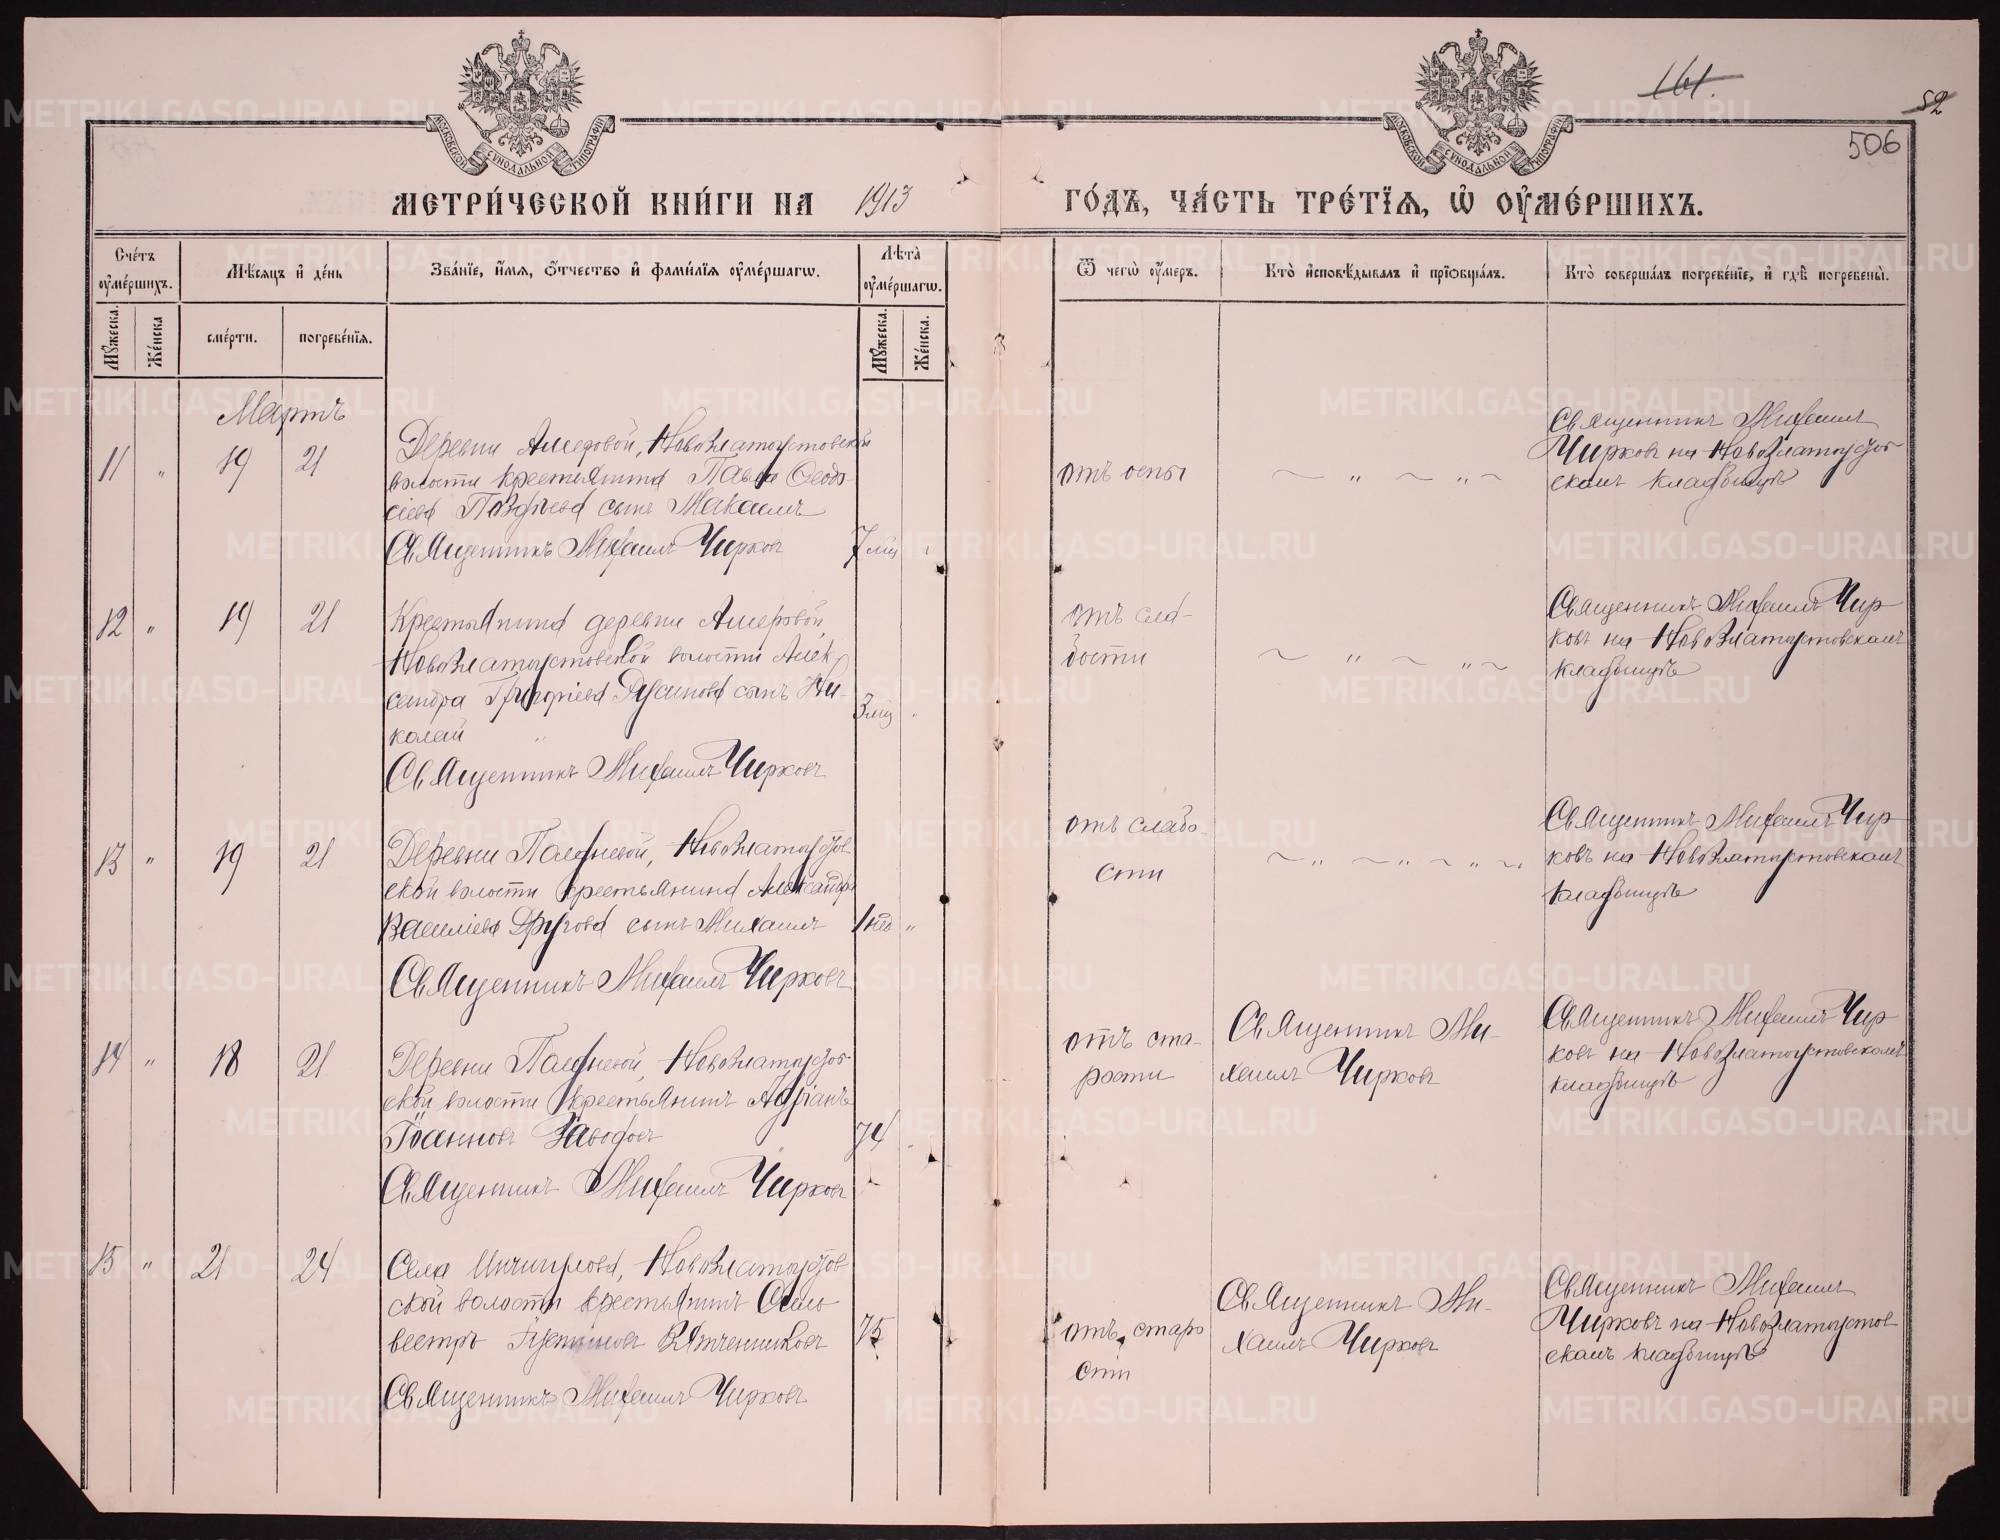 161.
52
506
МОСКОВСКОЙ СѴНОДАЛЬНОЙ ТИПОГРАФІИ
МОСКОВСКОЙ СѴНОДАЛЬНОЙ ТИПОГРАФІИ
МЕТРИ́ЧЕСКОЙ КНИ́ГИ НА 1913 ГО́ДЪ, ЧА́СТЬ ТРЕ́ТЇѦ, Ѡ҆ ОУ҆МЕ́РШИХЪ.
Сче́тъ оу҆ме́ршихъ.
Мꙋ́жеска.
Же́нска
Мѣ́сѧцъ и҆ де́нь
сме́рти.
погребе́нїѧ.
Зва́нїе, и҆́мѧ, ѻ҆́тчество и҆ фами́лїѧ оу҆ме́ршагѡ.
Лѣ̀та оу҆ме́ршагѡ.
Мꙋ́жеска.
Же́нска.
Ѿ чегѡ̀ оу҆́меръ.
Кто̀ и҆сповѣ́дывалъ и҆ прїѡбща́лъ.
Кто̀ соверша́лъ погребе́нїе, и҆ гдѣ̀ погребены̀.
Мартъ
11 „ 19 21
Деревни Ашеровой, Новозлатоустовской
волости крестьянина Павла Ѳеодо-
сіева сынъ
Священникъ Михаилъ Чирковъ
7 мц
отъ оспы
~ „ ~ „ ~
Священникъ Михаилъ
Чирковъ на Новозлатоустов-
скомъ кладбищѣ
12 „ 19 21
Крестьянина деревни Ашеровой,
Новозлатоустовской волости Алек-
сандра Григоріева Русинова сынъ Ни-
колай „
Священникъ Михаилъ Чирковъ
3 мц „
отъ сла-
бости
~ „ ~ „ ~
Священникъ Михаилъ Чир-
ковъ на Новозлатоустовскомъ
кладбищѣ
13 „ 19 21
Деревни Новозлатоустов-
ской волости крестьянина Александра
Василіева Другова сынъ Михаилъ
Священникъ Михаилъ Чирковъ
1 нед „
отъ слабо-
сти
~ „ ~ „ ~ „ ~
Священникъ Михаилъ Чир-
ковъ на Новозлатоустовскомъ
кладбищѣ
14 „ 18 21
Деревни Новозлатоустов-
ской волости крестьянинъ Адріанъ
Іоанновъ Заводовъ
Священникъ Михаилъ Чирковъ
74
отъ ста-
рости
Священникъ Ми-
хаилъ Чирковъ
Священникъ Михаилъ Чир-
ковъ на Новозлатоустовскомъ
кладбищѣ
15 „ 21 24
Села Новозлатоустов-
ской волости крестьянинъ Силь-
вестръ Іустиновъ Вятченниковъ
Священникъ Михаилъ Чирковъ
75
отъ старо
сти
Священникъ Ми-
хаилъ Чирковъ
Священникъ Михаилъ
Чирковъ на Новозлатоустов
скомъ кладбищѣ
METRIKI.GASO-URAL.RU